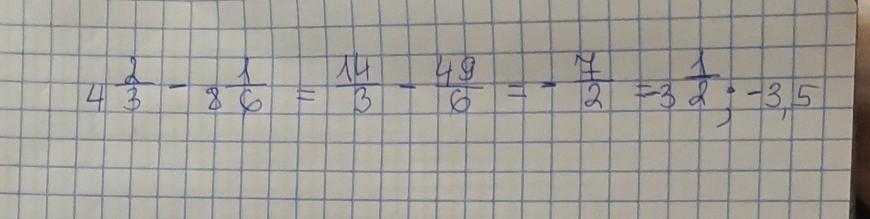 4 2/3 - 8 1/6 = 14/3 - 49/6 = - 7/2 = -3 1/2 ; -3,5